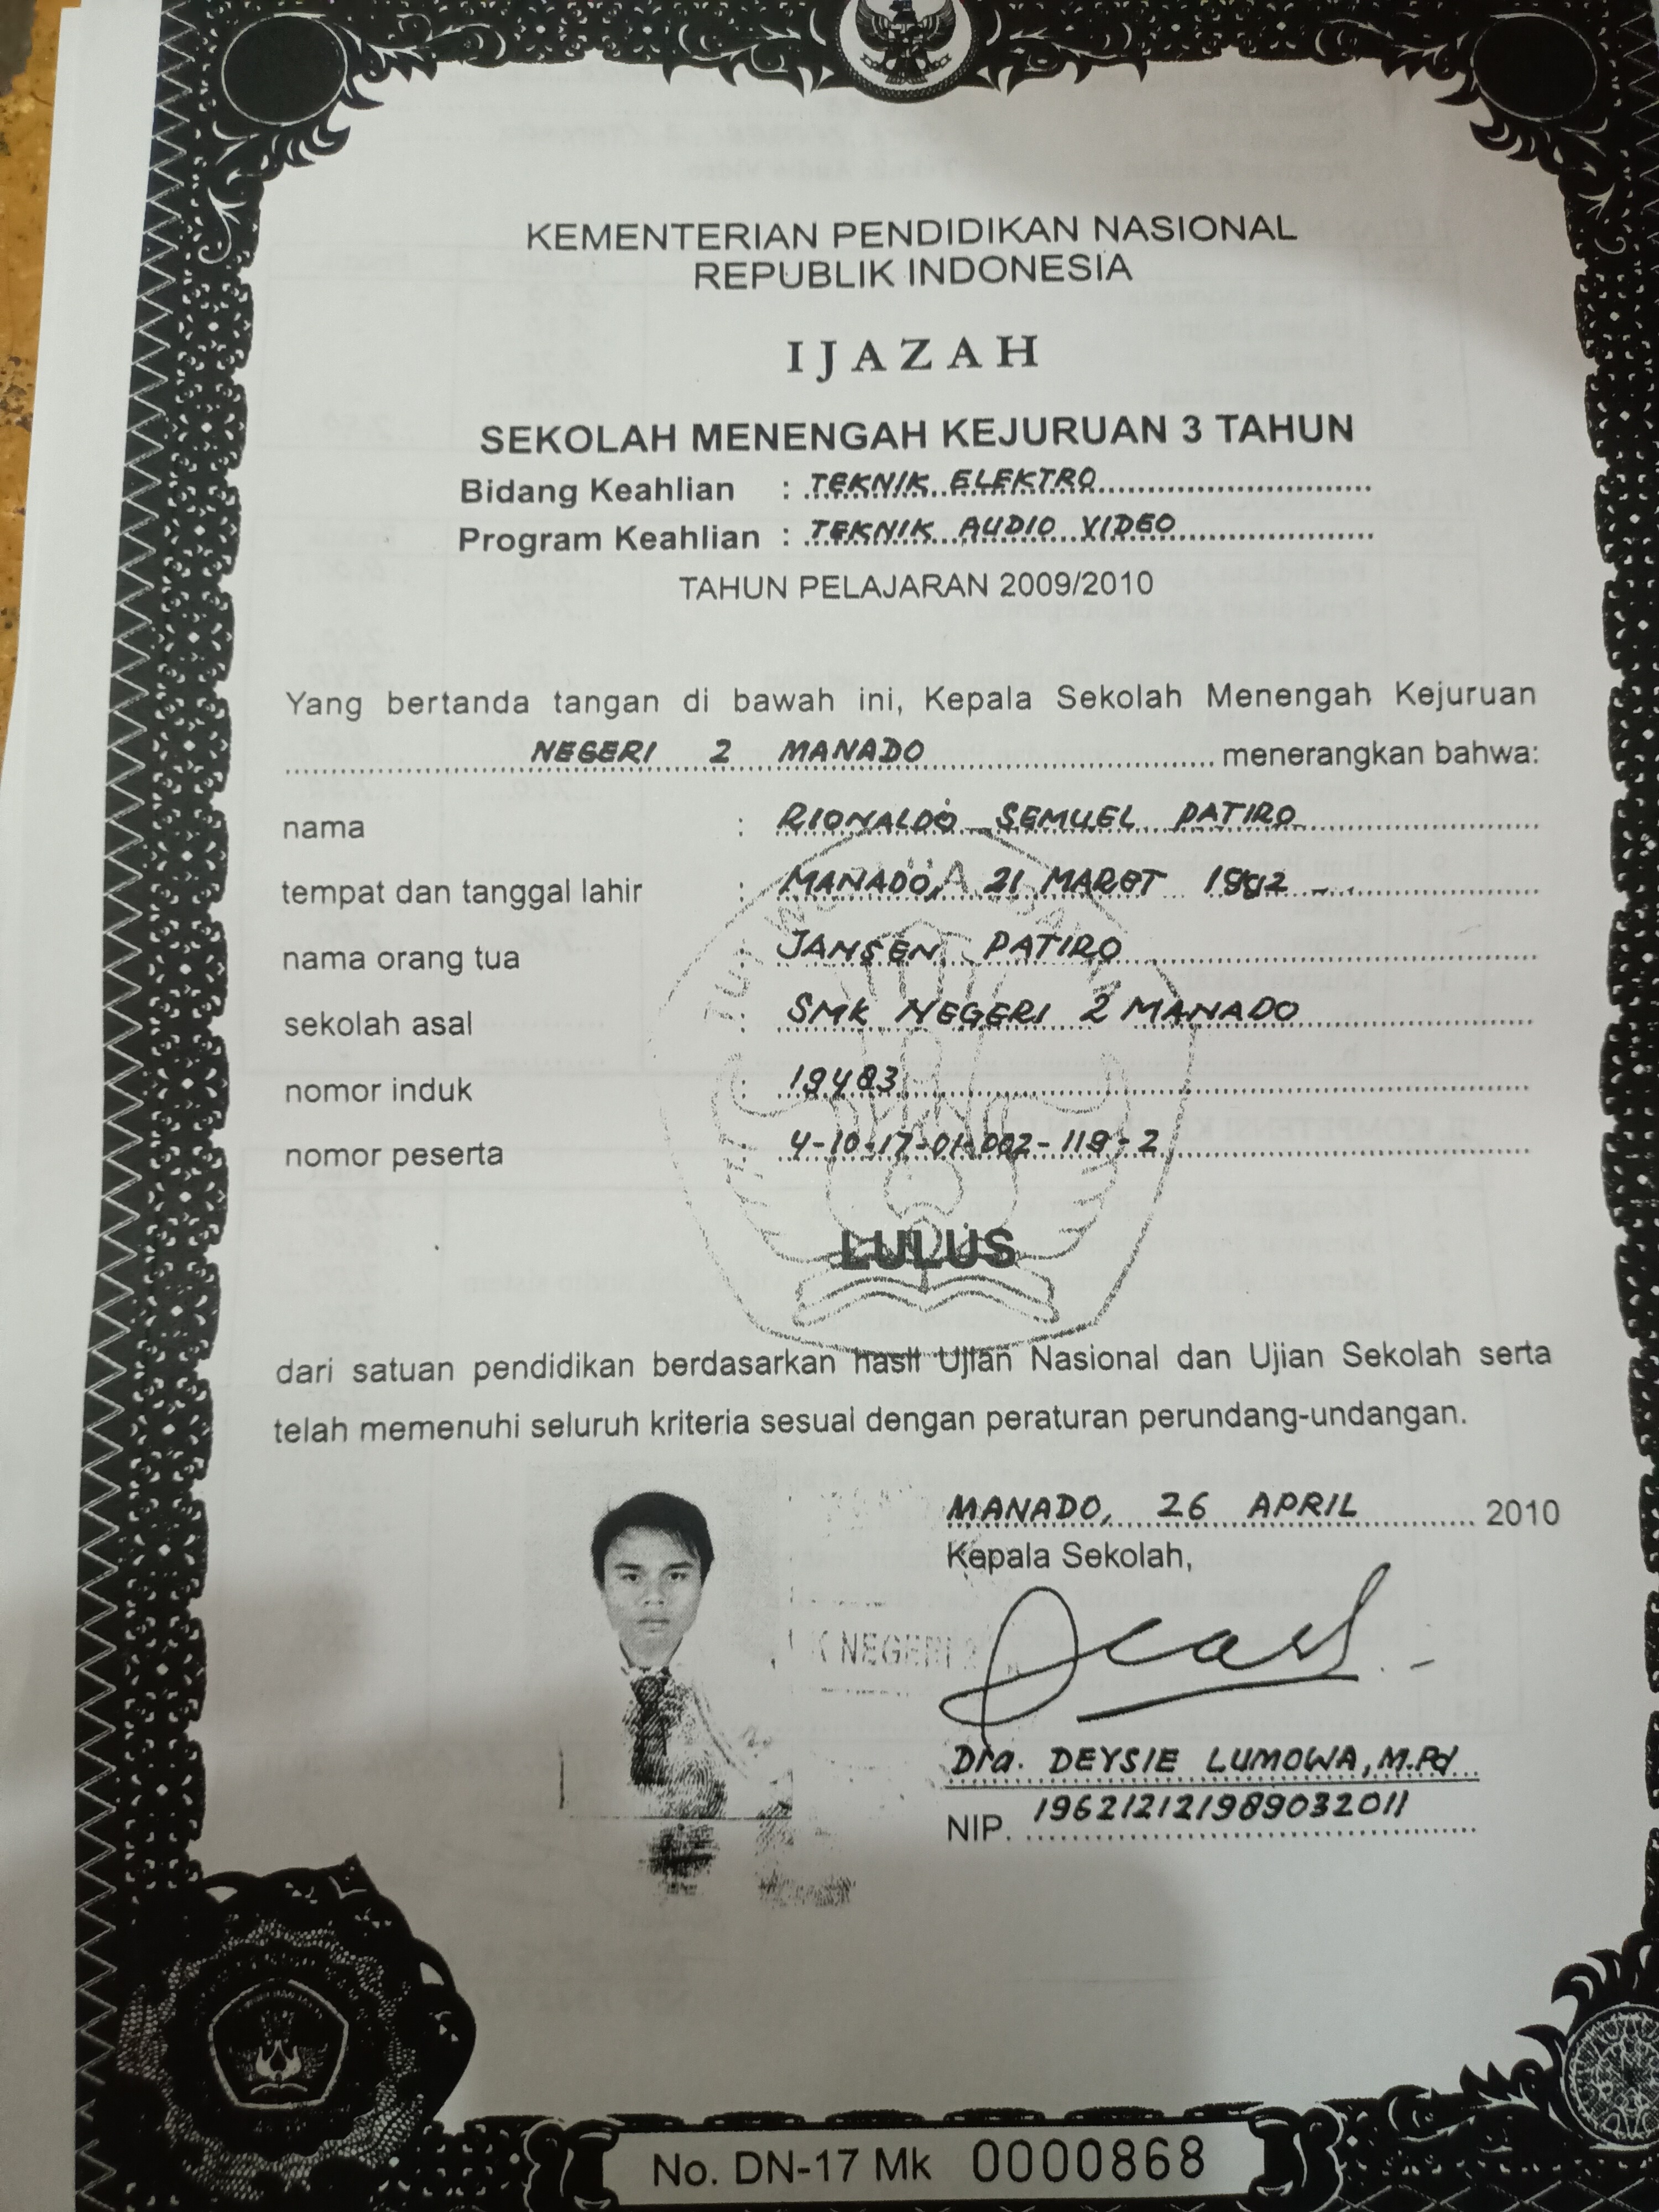 KEMENTERIAN PENDIDIKAN NASIONAL
REPUBLIK INDONESIA
IJAZAH
SEKOLAH MENENGAH KEJURUAN 3 TAHUN
Bidang Keahlian : TEKNIK ELEKTRO
Program Keahlian : TEKNIK AUDIO VIDEO
TAHUN PELAJARAN 2009/2010
Yang bertanda tangan di bawah ini, Kepala Sekolah Menengah Kejuruan
NEGERI 2 MANADO menerangkan bahwa:
nama : RIONALDO SEMUEL PATIRO
tempat dan tanggal lahir : MANADO, 21 MARET 1992
nama orang tua : JANSEN PATIRO
sekolah asal : SMK NEGERI 2 MANADO
nomor induk : 19483
nomor peserta : 4-10-17-01-002-119-2
LULUS
dari satuan pendidikan berdasarkan hasil Ujian Nasional dan Ujian Sekolah serta
telah memenuhi seluruh kriteria sesuai dengan peraturan perundang-undangan.
MANADO, 26 APRIL 2010
Kepala Sekolah,
NEGERI 2
Dra. DEYSIE LUMOWA, M.Pd
NIP. 196212121989032011
No. DN-17 Mk 0000868